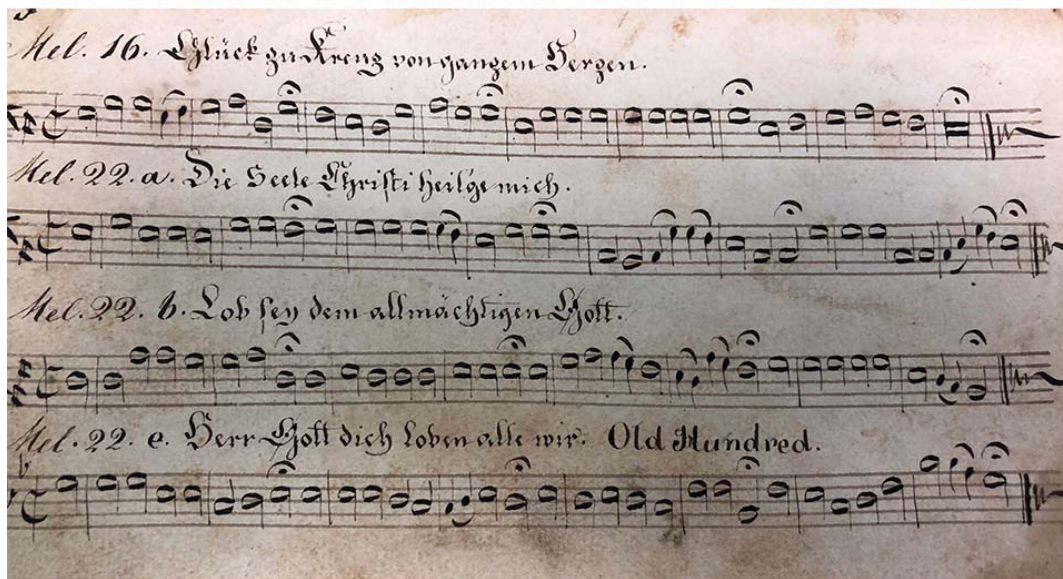 Mel. 16. Glück zu Kreuz von ganzem Herzen.
Mel. 22. a. Die Seele Christi heilge mich.
Mel. 22. b. Lob sey dem allmächtigen Gott.
Mel. 22. e. Herr Gott dich loben alle wir. Old Hundred.